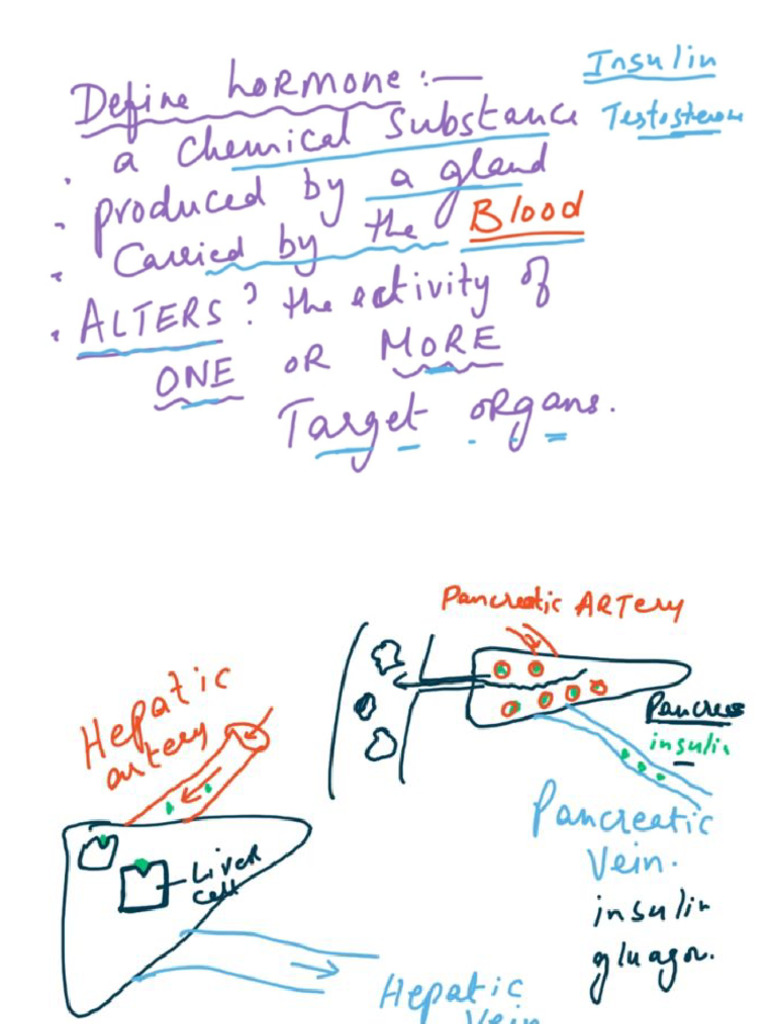 Define hormone:—
Insulin
Testosterone
a chemical substance
• produced by a gland
• Carried by the Blood
• ALTERS? the activity of
ONE OR MORE
Target organs.
Pancreatic ARTery
Hepatic
artery
Pancreas
insulin
Pancreatic
Vein.
insulin
gluagon.
Liver
cell
Hepatic
Vein